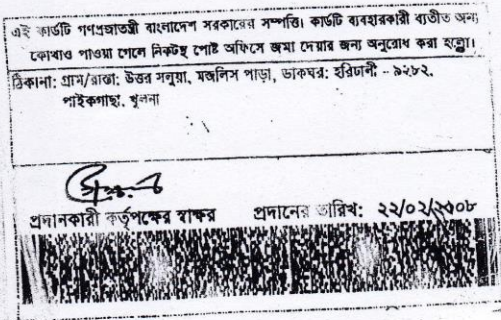 এই কার্ডটি গণপ্রজাতন্ত্রী বাংলাদেশ সরকারের সম্পত্তি। কার্ডটি ব্যবহারকারী ব্যতীত অন্য
কোথাও পাওয়া গেলে নিকটস্থ পোষ্ট অফিসে জমা দেয়ার জন্য অনুরোধ করা হলো।
ঠিকানা: গ্রাম/রাস্তা: উত্তর সলুয়া, মজলিস পাড়া, ডাকঘর: হরিঢালী - ৯২৮২,
পাইকগাছা, খুলনা
প্রদানকারী কর্তৃপক্ষের স্বাক্ষর প্রদানের তারিখ: ২২/০২/২০০৮